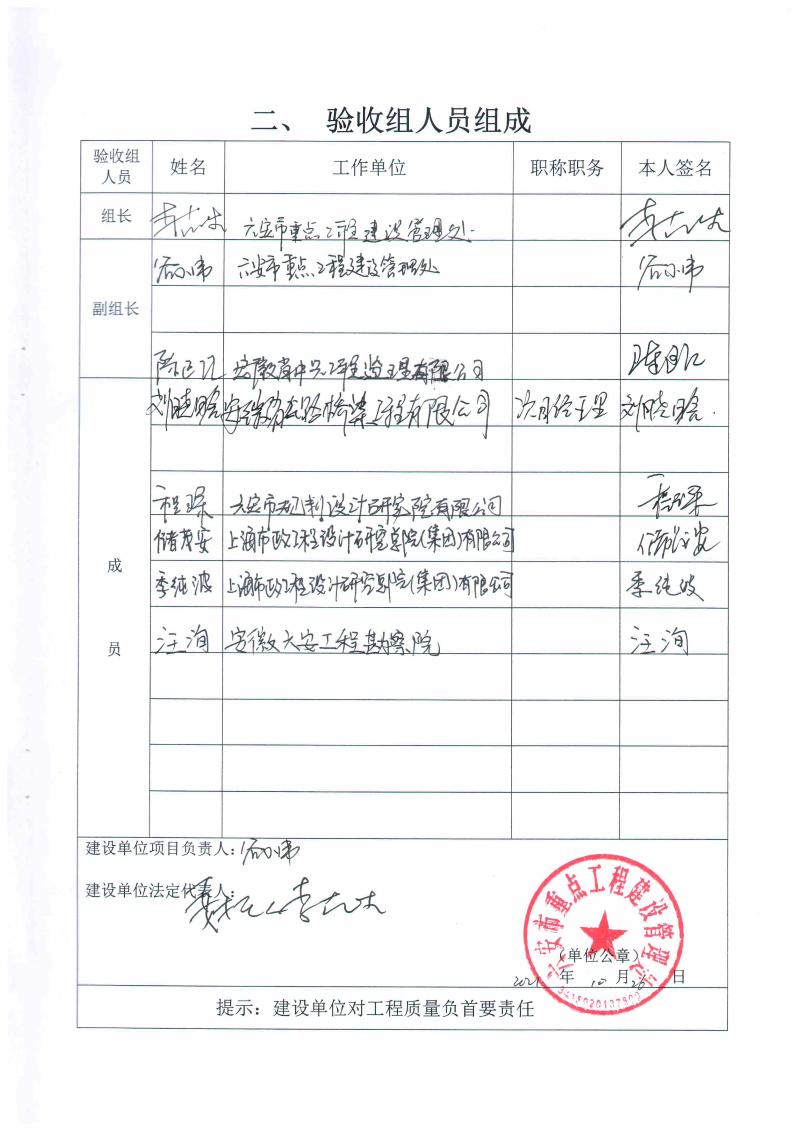 二、 验收组人员组成
验收组人员 姓名 工作单位 职称职务 本人签名
组长 六安市重点工程建设管理处
副组长 六安市重点工程建设管理处
安徽省中兴工程监理有限公司
刘晓晗 路桥梁工程有限公司 项目经理 刘晓晗
成员
程琛 六安市规划设计研究院有限公司 程琛
储茂安 上海市政工程设计研究总院(集团)有限公司 储茂安
季纯波 上海市政工程设计研究总院(集团)有限公司 季纯波
汪洵 安徽六安工程勘察院 汪洵
建设单位项目负责人:
建设单位法定代表人:
六安市重点工程建设管理处
(单位公章)
2021 年 10 月 日
提示:建设单位对工程质量负首要责任